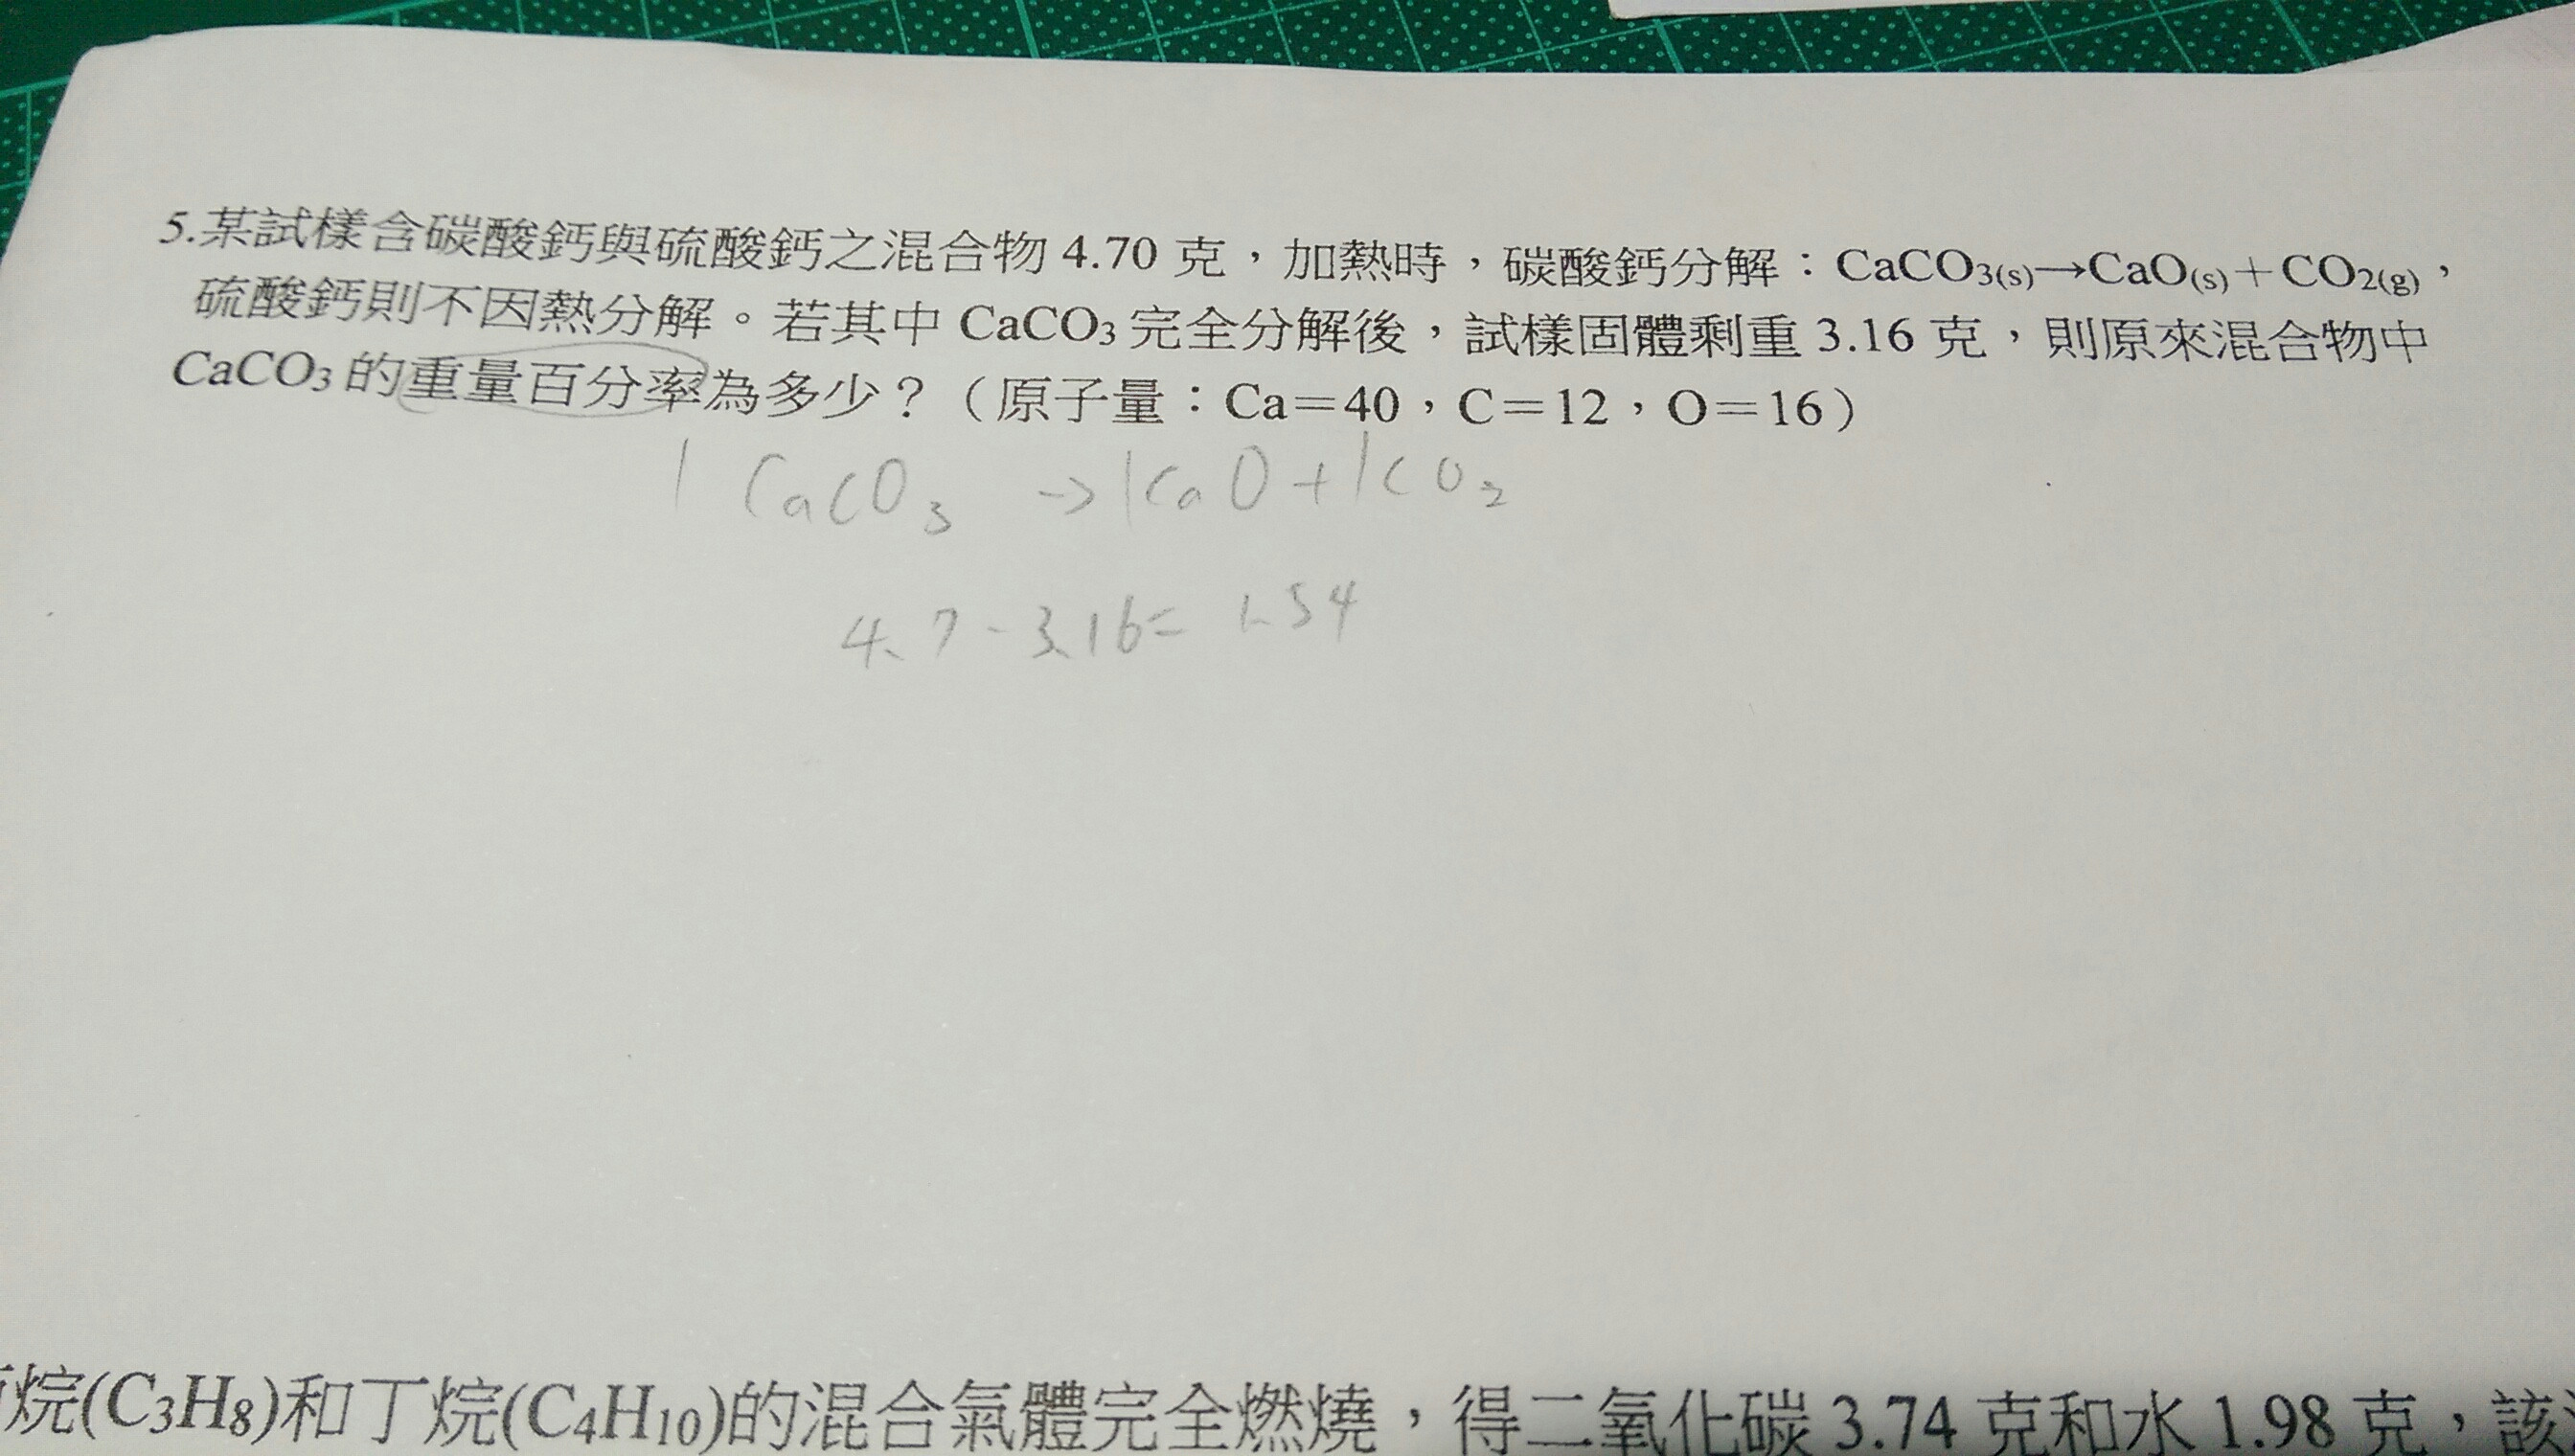 5.某試樣含碳酸鈣與硫酸鈣之混合物 4.70 克，加熱時，碳酸鈣分解：CaCO3(s)→CaO(s)＋CO2(g)，
硫酸鈣則不因熱分解。若其中 CaCO3 完全分解後，試樣固體剩重 3.16 克，則原來混合物中
CaCO3 的重量百分率為多少？（原子量：Ca＝40，C＝12，O＝16）
1 CaCO3 → 1CaO + 1CO2
4.7 - 3.16 = 1.54
烷(C3H8)和丁烷(C4H10)的混合氣體完全燃燒，得二氧化碳 3.74 克和水 1.98 克，該